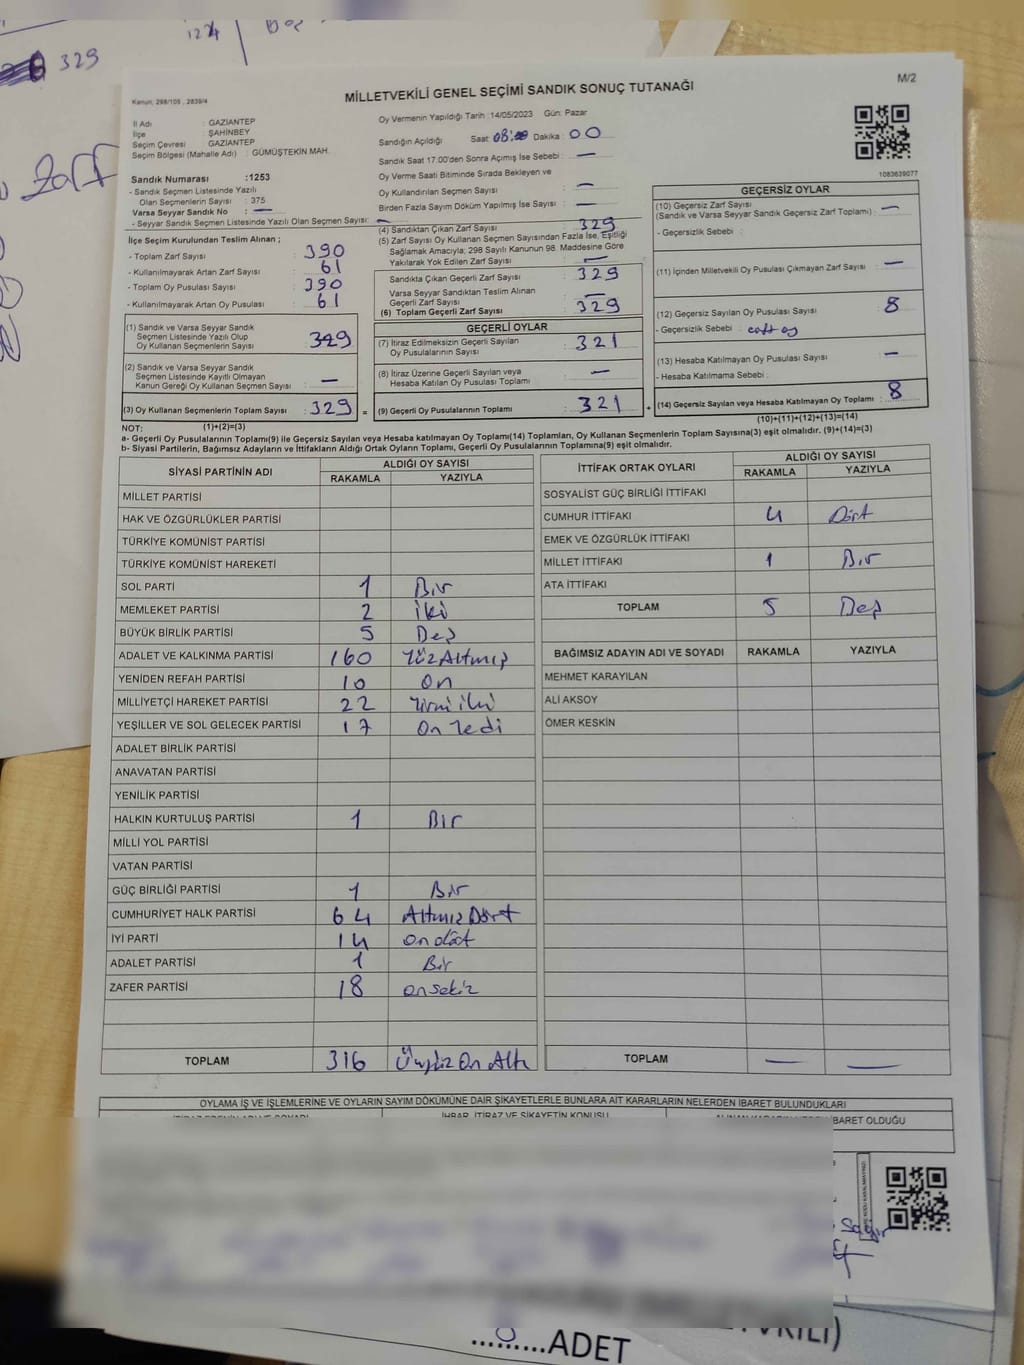 329
M/2
MİLLETVEKİLİ GENEL SEÇİMİ SANDIK SONUÇ TUTANAĞI
Kanun: 298/105 , 2839/4
İl Adı : GAZİANTEP
İlçe : ŞAHİNBEY
Seçim Çevresi : GAZİANTEP
Seçim Bölgesi (Mahalle Adı) : GÜMÜŞTEKİN MAH.
Oy Vermenin Yapıldığı Tarih : 14/05/2023 Gün: Pazar
Sandığın Açıldığı Saat: 08:00 Dakika : 00
Sandık Saat 17.00'den Sonra Açımış İse Sebebi : —
Oy Verme Saati Bitiminde Sırada Bekleyen ve
Oy Kullandırılan Seçmen Sayısı : —
Birden Fazla Sayım Döküm Yapılmış İse Sayısı : —
1083639077
Zarf
Sandık Numarası :1253
- Sandık Seçmen Listesinde Yazılı
Olan Seçmenlerin Sayısı : 375
Varsa Seyyar Sandık No : —
- Seyyar Sandık Seçmen Listesinde Yazılı Olan Seçmen Sayısı: —
İlçe Seçim Kurulundan Teslim Alınan ;
- Toplam Zarf Sayısı : 390
- Kullanılmayarak Artan Zarf Sayısı : 61
- Toplam Oy Pusulası Sayısı : 390
- Kullanılmayarak Artan Oy Pusulası : 61
(1) Sandık ve Varsa Seyyar Sandık
Seçmen Listesinde Yazılı Olup
Oy Kullanan Seçmenlerin Sayısı : 329
(2) Sandık ve Varsa Seyyar Sandık
Seçmen Listesinde Kayıtlı Olmayan
Kanun Gereği Oy Kullanan Seçmen Sayısı : —
(3) Oy Kullanan Seçmenlerin Toplam Sayısı : 329 =
(1)+(2)=(3)
(4) Sandıktan Çıkan Zarf Sayısı : 329
(5) Zarf Sayısı Oy Kullanan Seçmen Sayısından Fazla İse, Eşitliği
Sağlamak Amacıyla; 298 Sayılı Kanunun 98. Maddesine Göre
Yakılarak Yok Edilen Zarf Sayısı : —
Sandıkla Çıkan Geçerli Zarf Sayısı : 329
Varsa Seyyar Sandıktan Teslim Alınan
Geçerli Zarf Sayısı : —
(6) Toplam Geçerli Zarf Sayısı : 329
GEÇERLİ OYLAR
(7) İtiraz Edilmeksizin Geçerli Sayılan
Oy Pusulalarının Sayısı : 321
(8) İtiraz Üzerine Geçerli Sayılan veya
Hesaba Katılan Oy Pusulası Toplamı : —
(9) Geçerli Oy Pusulalarının Toplamı : 321 +
GEÇERSİZ OYLAR
(10) Geçersiz Zarf Sayısı
(Sandık ve Varsa Seyyar Sandık Geçersiz Zarf Toplamı) : —
- Geçersizlik Sebebi :
(11) İçinden Milletvekili Oy Pusulası Çıkmayan Zarf Sayısı : —
(12) Geçersiz Sayılan Oy Pusulası Sayısı : 8
- Geçersizlik Sebebi : çift oy
(13) Hesaba Katılmayan Oy Pusulası Sayısı : —
- Hesaba Katılmama Sebebi :
(14) Geçersiz Sayılan veya Hesaba Katılmayan Oy Toplamı : 8
(10)+(11)+(12)+(13)=(14)
NOT:
a- Geçerli Oy Pusulalarının Toplamı(9) ile Geçersiz Sayılan veya Hesaba katılmayan Oy Toplamı(14) Toplamları, Oy Kullanan Seçmenlerin Toplam Sayısına(3) eşit olmalıdır. (9)+(14)=(3)
b- Siyasi Partilerin, Bağımsız Adayların ve İttifakların Aldığı Ortak Oyların Toplamı, Geçerli Oy Pusulalarının Toplamına(9) eşit olmalıdır.
SİYASİ PARTİNİN ADI ALDIĞI OY SAYISI
RAKAMLA YAZIYLA
MİLLET PARTİSİ
HAK VE ÖZGÜRLÜKLER PARTİSİ
TÜRKİYE KOMÜNİST PARTİSİ
TÜRKİYE KOMÜNİST HAREKETİ
SOL PARTİ 1 Bir
MEMLEKET PARTİSİ 2 iki
BÜYÜK BİRLİK PARTİSİ 5 Beş
ADALET VE KALKINMA PARTİSİ 160 YüzAltmış
YENİDEN REFAH PARTİSİ 10 On
MİLLİYETÇİ HAREKET PARTİSİ 22 Yirmi iki
YEŞİLLER VE SOL GELECEK PARTİSİ 17 On Yedi
ADALET BİRLİK PARTİSİ
ANAVATAN PARTİSİ
YENİLİK PARTİSİ
HALKIN KURTULUŞ PARTİSİ 1 Bir
MİLLİ YOL PARTİSİ
VATAN PARTİSİ
GÜÇ BİRLİĞİ PARTİSİ 1 Bir
CUMHURİYET HALK PARTİSİ 64 Altmış Dört
İYİ PARTİ 14 on dört
ADALET PARTİSİ 1 Bir
ZAFER PARTİSİ 18 onsekiz
TOPLAM 316 Üçyüz On Altı
İTTİFAK ORTAK OYLARI ALDIĞI OY SAYISI
RAKAMLA YAZIYLA
SOSYALİST GÜÇ BİRLİĞİ İTTİFAKI
CUMHUR İTTİFAKI 4 Dört
EMEK VE ÖZGÜRLÜK İTTİFAKI
MİLLET İTTİFAKI 1 Bir
ATA İTTİFAKI
TOPLAM 5 Beş
BAĞIMSIZ ADAYIN ADI VE SOYADI RAKAMLA YAZIYLA
MEHMET KARAYILAN
ALİ AKSOY
ÖMER KESKİN
TOPLAM — —
OYLAMA İŞ VE İŞLEMLERİNE VE OYLARIN SAYIM DÖKÜMÜNE DAİR ŞİKAYETLERLE BUNLARA AİT KARARLARIN NELERDEN İBARET BULUNDUKLARI
İHBAR, İTİRAZ VE ŞİKAYETİN KONUSU
İBARET OLDUĞU
.........ADET